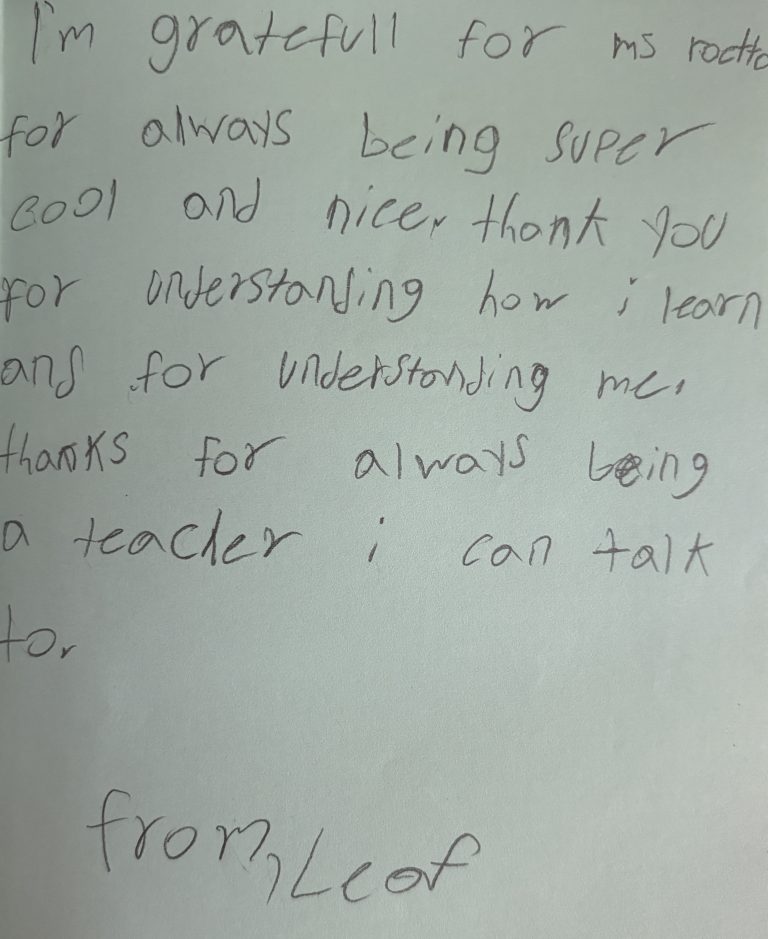 I'm gratefull for ms
for always being super
cool and nice, thank you
for understanding how i learn
and for understanding me.
thanks for always being
a teacher i can talk
to.
from, Leaf